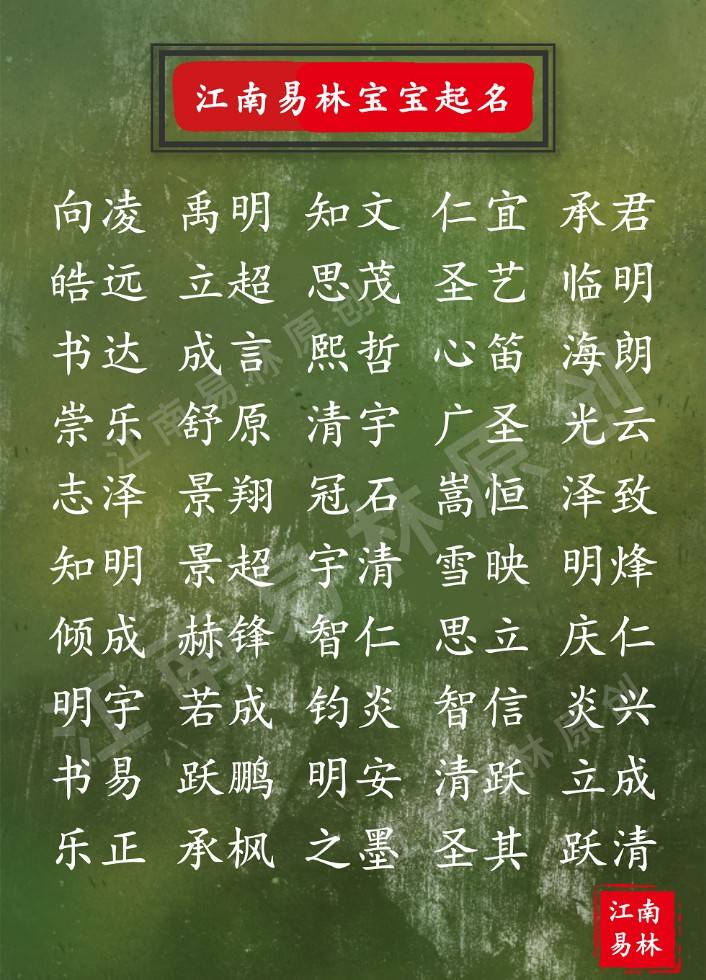 江南易林宝宝起名
向凌 禹明 知文 仁宜 承君
皓远 立超 思茂 圣艺 临明
书达 成言 熙哲 心笛 海朗
崇乐 舒原 清宇 广圣 光云
志泽 景翔 冠石 嵩恒 泽致
知明 景超 宇清 雪映 明烽
倾成 赫锋 智仁 思立 庆仁
明宇 若成 钧炎 智信 炎兴
书易 跃鹏 明安 清跃 立成
乐正 承枫 之墨 圣其 跃清
江南易林原创
江南易林原创
林原创
江南
易林